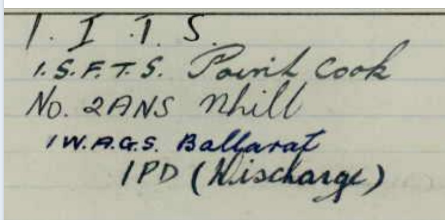 1. I. T. S.
1. S. F. T. S. Point Cook
No. 2 ANS Nhill
1 W.A.G.S. Ballarat
1PD (Discharge)